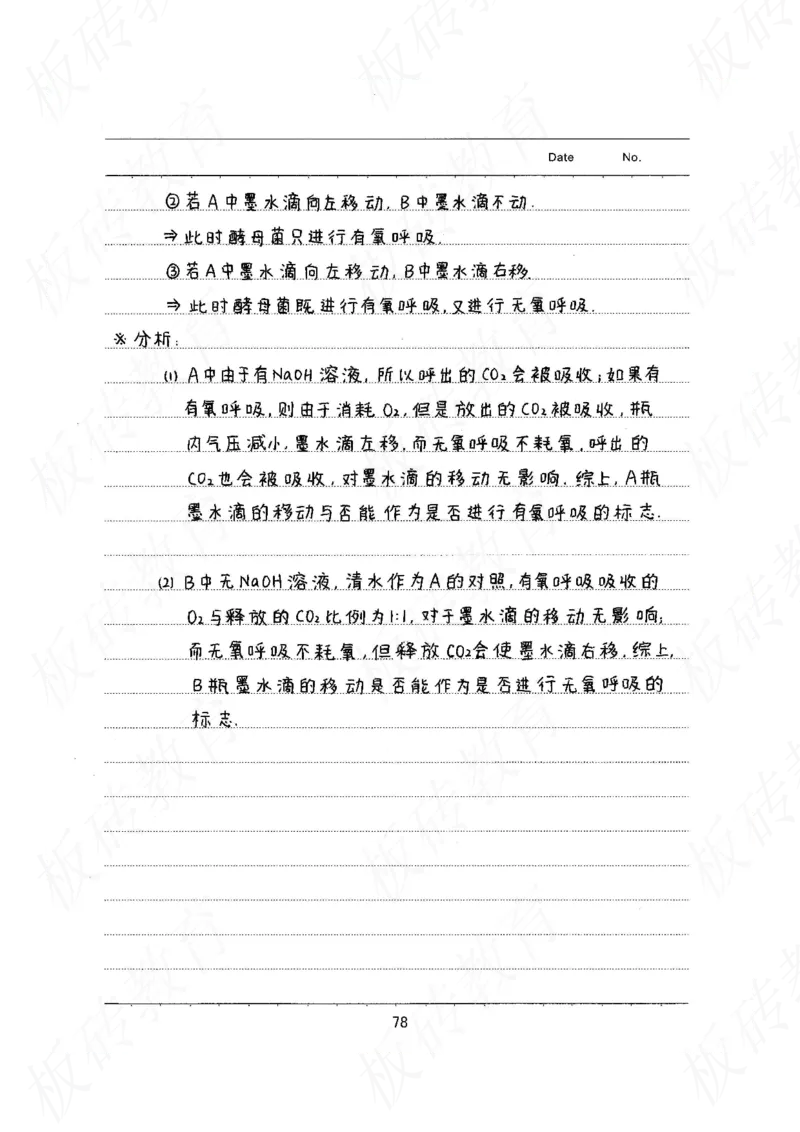 Date No.
②若A中墨水滴向左移动，B中墨水滴不动.
⇒此时酵母菌只进行有氧呼吸.
③若A中墨水滴向左移动，B中墨水滴右移.
⇒此时酵母菌既进行有氧呼吸,又进行无氧呼吸.
※分析:
(1) A中由于有NaOH溶液，所以呼出的CO₂会被吸收；如果有
有氧呼吸，则由于消耗O₂，但是放出的CO₂被吸收，瓶
内气压减小，墨水滴左移，而无氧呼吸不耗氧，呼出的
CO₂也会被吸收，对墨水滴的移动无影响. 综上，A瓶
墨水滴的移动与否能作为是否进行有氧呼吸的标志.
(2) B中无NaOH溶液，清水作为A的对照，有氧呼吸吸收的
O₂与释放的CO₂比例为1:1，对于墨水滴的移动无影响;
而无氧呼吸不耗氧，但释放CO₂会使墨水滴右移. 综上，
B瓶墨水滴的移动是否能作为是否进行无氧呼吸的
标志.
78
板砖教育